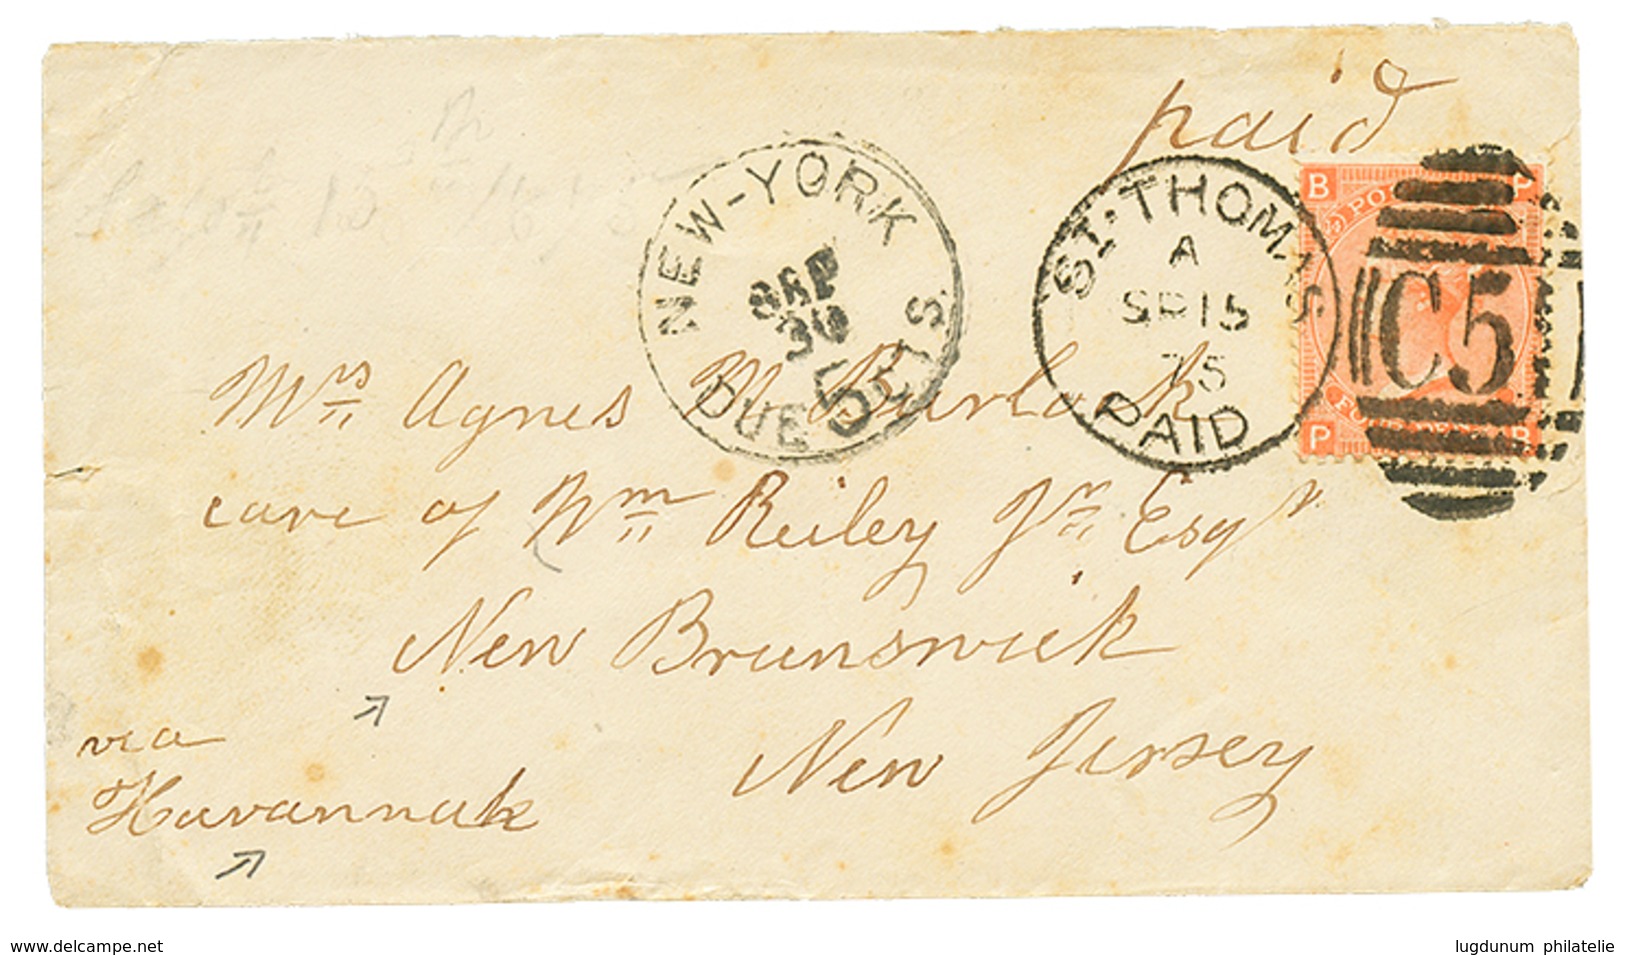 paid
NEW-YORK
SEP
30
DUE 5 CTS
ST. THOMAS
A
SP 15
75
PAID
C5
B P
P B
Mrs Agnes M Burlock
care of Wm Reiley Jr Esqr
New Brunswick
New Jersey
via
Havannah
www.delcampe.net
lugdunum philatelie